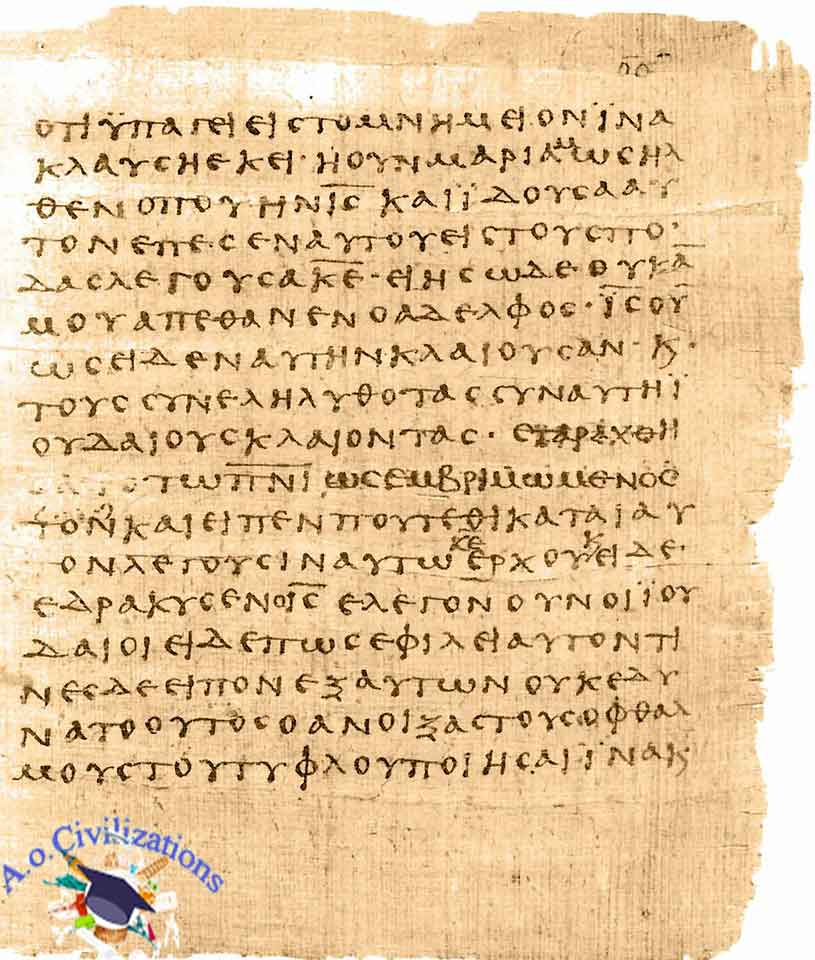 ΟΤΙΫΠΑΓΕΙΕΙϹΤΟΜΝΗΜΕΙΟΝΪΝΑ
ΚΛΑΥϹΗΕΚΕΙ·ΗΟΥΝΜΑΡΙΑΜΩϹΗΛ
ΘΕΝΟΠΟΥΗΝΙ̅Ϲ̅ΚΑΙΪΔΟΥϹΑΑΥ
ΤΟΝΕΠΕϹΕΝΑΥΤΟΥΕΙϹΤΟΥϹΠΟ·
ΔΑϹΛΕΓΟΥϹΑΚ̅Ε̅·ΕΙΗϹΩΔΕΟΥΚΑ̅
ΜΟΥΑΠΕΘΑΝΕΝΟΑΔΕΛΦΟϹ·Ι̅Ϲ̅ΟΥ̅
ΩϹΕΙΔΕΝΑΥΤΗΝΚΛΑΙΟΥϹΑΝ·Κ·
ΤΟΥϹϹΥΝΕΛΗΛΥΘΟΤΑϹϹΥΝΑΥΤΗΪ
ΟΥΔΑΙΟΥϹΚΛΑΙΟΝΤΑϹ·ΕΤΑΡΑΧΘΗ
ΤΩΠ̅Ν̅Ι̅ΩϹΕΜΒΡΙΜΩΜΕΝΟϹ
ΤΟΝΚΑΙΕΙΠΕΝΠΟΥΤΕΘΙΚΑΤΑΙΑΥ
ΤΟΝΛΕΓΟΥϹΙΝΑΥΤΩΚ̅Ε̅ΕΡΧΟΥΚΕΙΔΕ·
ΕΔΡΑΚΥϹΕΝΟΙ̅Ϲ̅ΕΛΕΓΟΝΟΥΝΟΙΪΟΥ
ΔΑΙΟΙΕΙΔΕΠΩϹΕΦΙΛΕΙΑΥΤΟΝΤΙ
ΝΕϹΔΕΕΙΠΟΝΕΞΑΥΤΩΝΟΥΚΕΔΥ
ΝΑΤΟΟΥΤΟϹΟΑΝΟΙΞΑϹΤΟΥϹΟΦΘΑΛ
ΜΟΥϹΤΟΥΤΥΦΛΟΥΠΟΙΗϹΑΙΪΝΑΚ
A.o.Civilizations